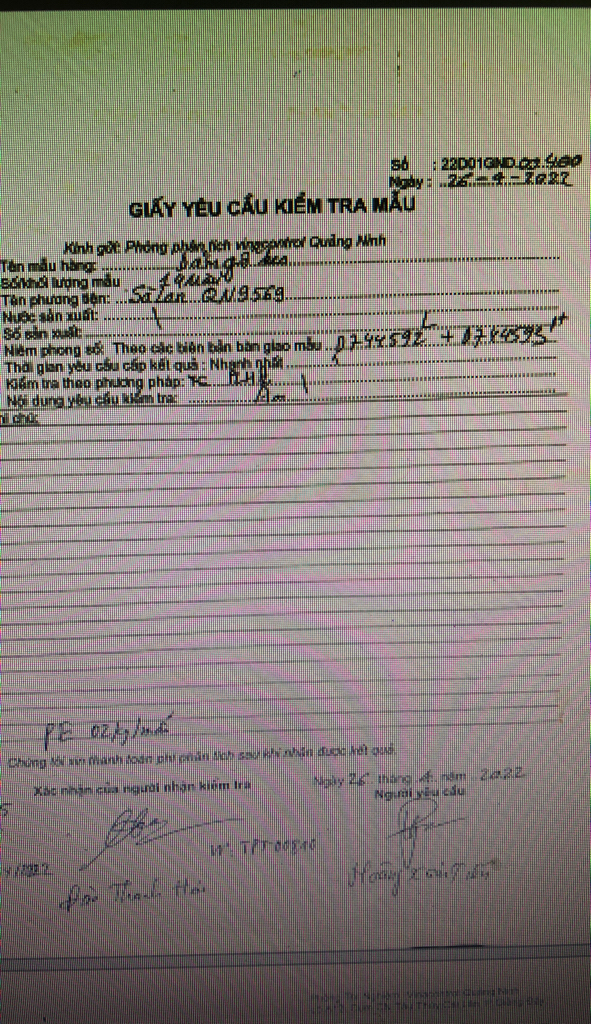 Số : 22D01GND.02.400
Ngày : 26-4-2022
GIẤY YÊU CẦU KIỂM TRA MẪU
Kính gửi: Phòng phân tích vinacontrol Quảng Ninh
Tên mẫu hàng: Dăm gỗ keo
Số/khối lượng mẫu
Tên phương tiện: Sà lan QN9569
Nước sản xuất: \
Số sản xuất:
Niêm phong số: Theo các biên bản bàn giao mẫu 0744592 + 0744593
Thời gian yêu cầu cấp kết quả : Nhanh nhất
Kiểm tra theo phương pháp: TC
Nội dung yêu cầu kiểm tra: Ẩm
PE 02kg/mẫu
Chúng tôi xin thanh toán phí phân tích sau khi nhận được kết quả.
Ngày 26 tháng 4 năm 2022
Xác nhận của người nhận kiểm tra
Người yêu cầu
TPT00810
4/2022
Đào Thanh Hải
Hoàng Xuân
Phòng Thử Nghiệm Vinacontrol Quảng Ninh